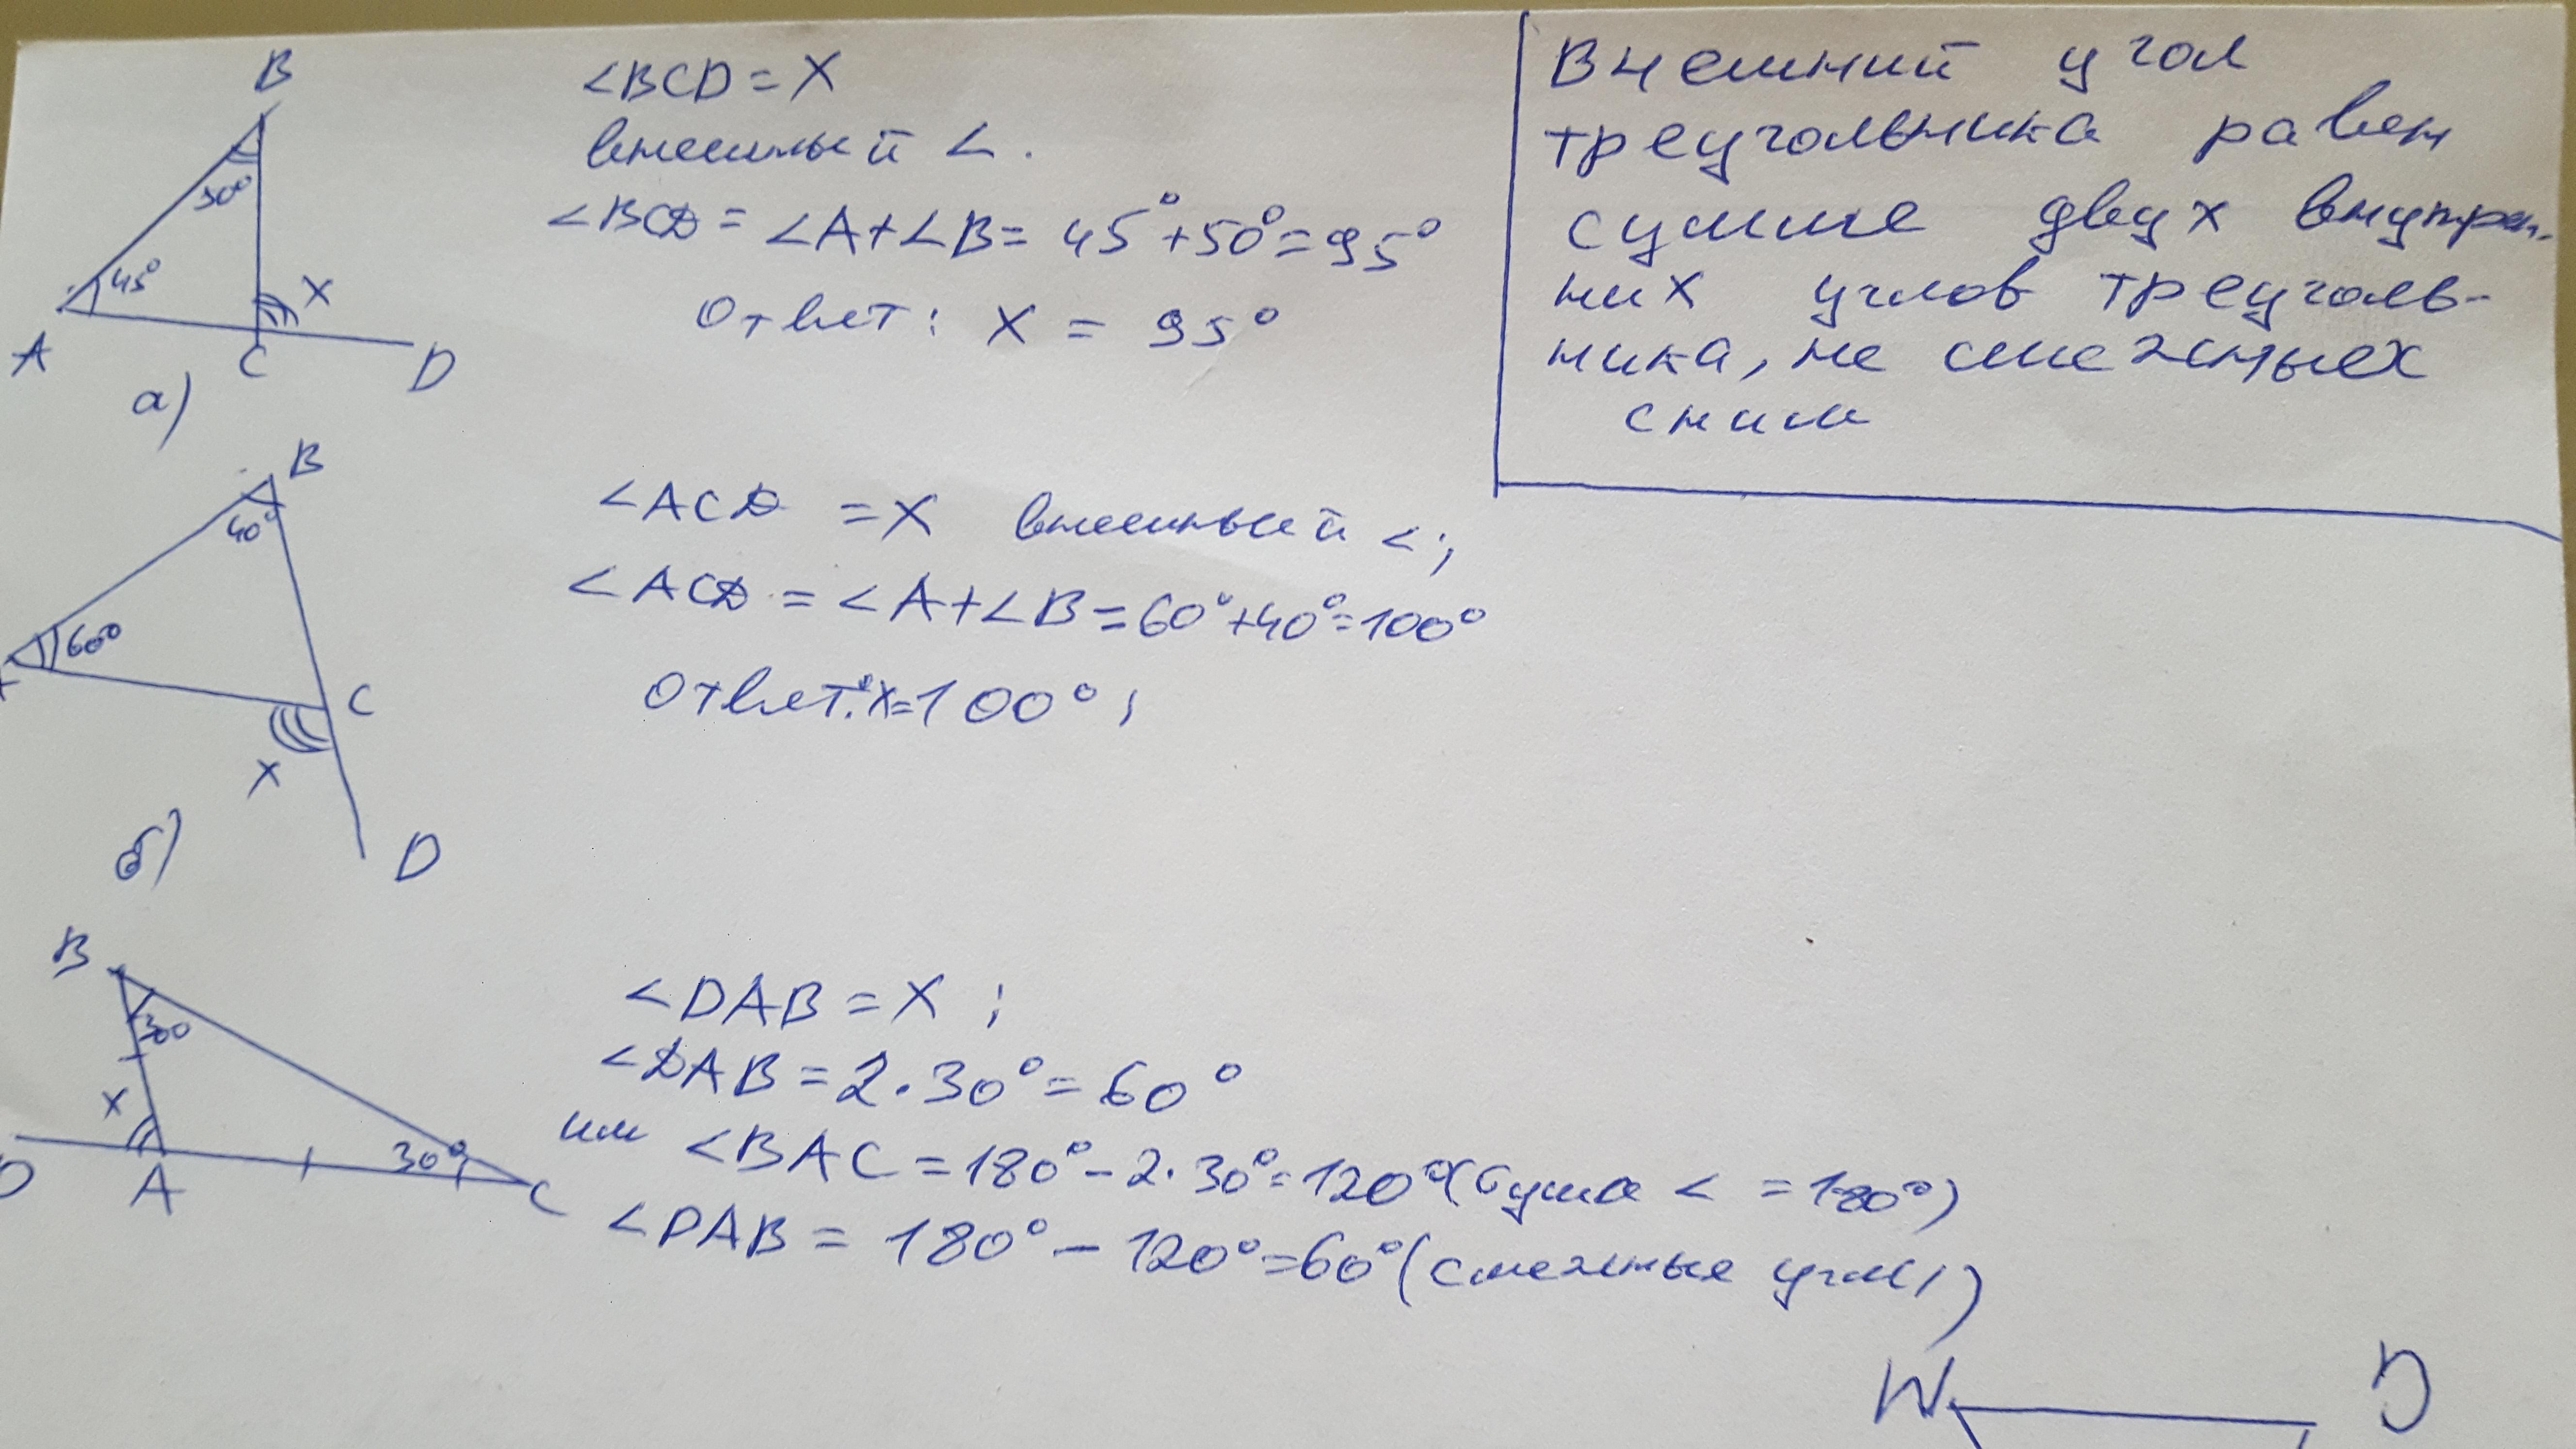 B
50°
45°
X
A
C
D
а)
∠BCD = X
внешный ∠.
∠BCD = ∠A+∠B = 45°+50°=95°
Ответ: X = 95°
Внешний угол
треугольника равен
сумме двух внутрен-
них углов треуголь-
ника, не смежных
с ним
B
40°
60°
C
X
D
б)
∠ACD = X внешный ∠;
∠ACD = ∠A+∠B=60°+40°=100°
Ответ: x=100°;
B
30°
X
30°
D
A
C
∠DAB = X ;
∠DAB = 2·30° = 60°
или ∠BAC = 180° - 2·30° = 120° (сума ∠ = 180°)
∠DAB = 180° - 120° = 60° (смежные углы)
W
D